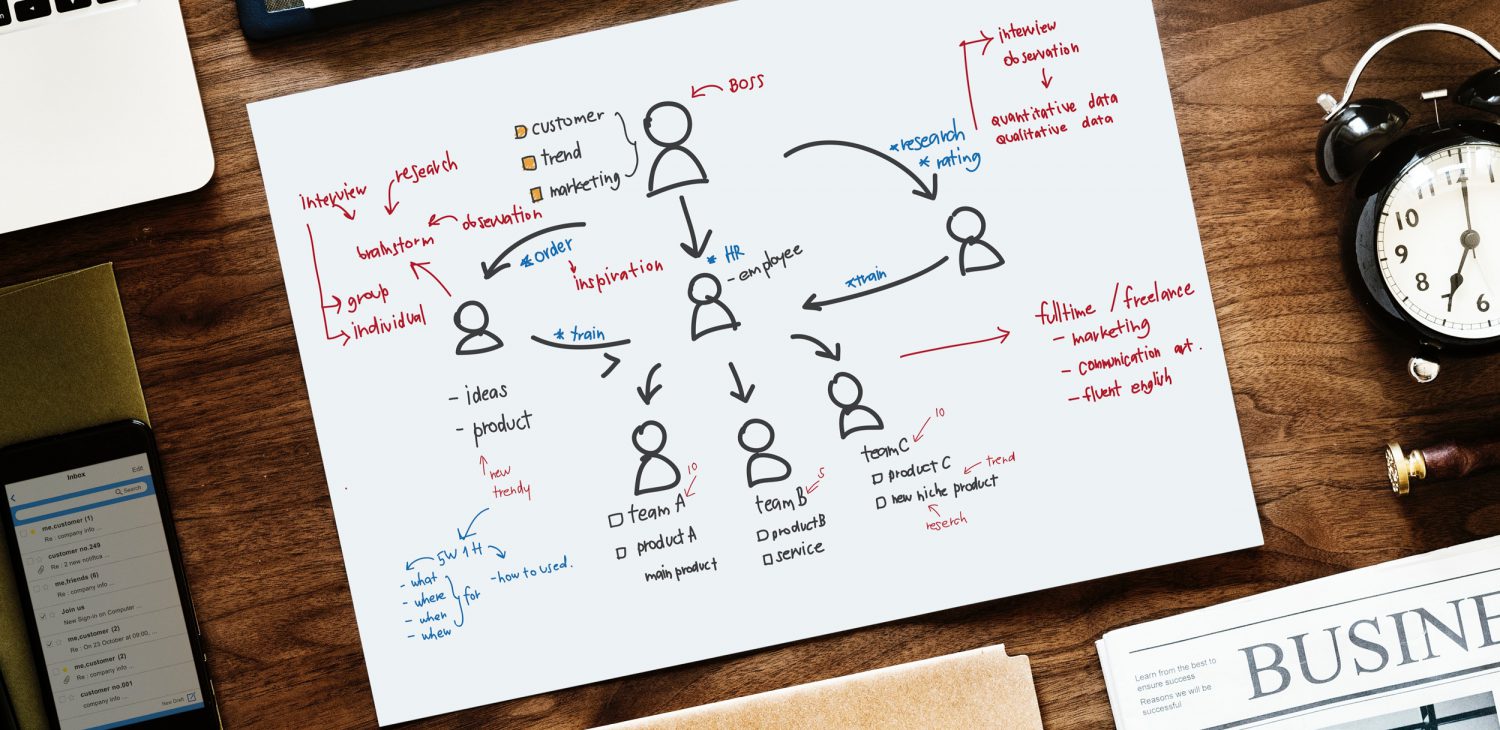 BOSS
customer
trend
marketing
interview
observation
quantitative data
qualitative data
*research
* rating
interview
research
observation
brainstorm
group
individual
*order
inspiration
* HR
- employee
*train
* train
- ideas
- product
new
trendy
5W 1H
- what
- where
- when
- whew
for
- how to used.
team A
10
product A
main product
team B
5
product B
service
team C
10
product C
trend
new niche product
reserch
fulltime / freelance
- marketing
- communication art.
- fluent english
10
9
8
7
6
5
Inbox
Edit
Search
me,customer (1)
Re : company info ...
customer no.249
Re : 2 new notifica ...
me,friends (6)
Re : company info ...
Join us
New Sign-in on Computer ...
me,customer (2)
Re : On 23 October at 09:00, ...
me,customer (2)
Re : company info ...
customer no.001
company Info ...
New Draft
BUSINE
Learn from the best to
ensure success
Reasons we will be
successful